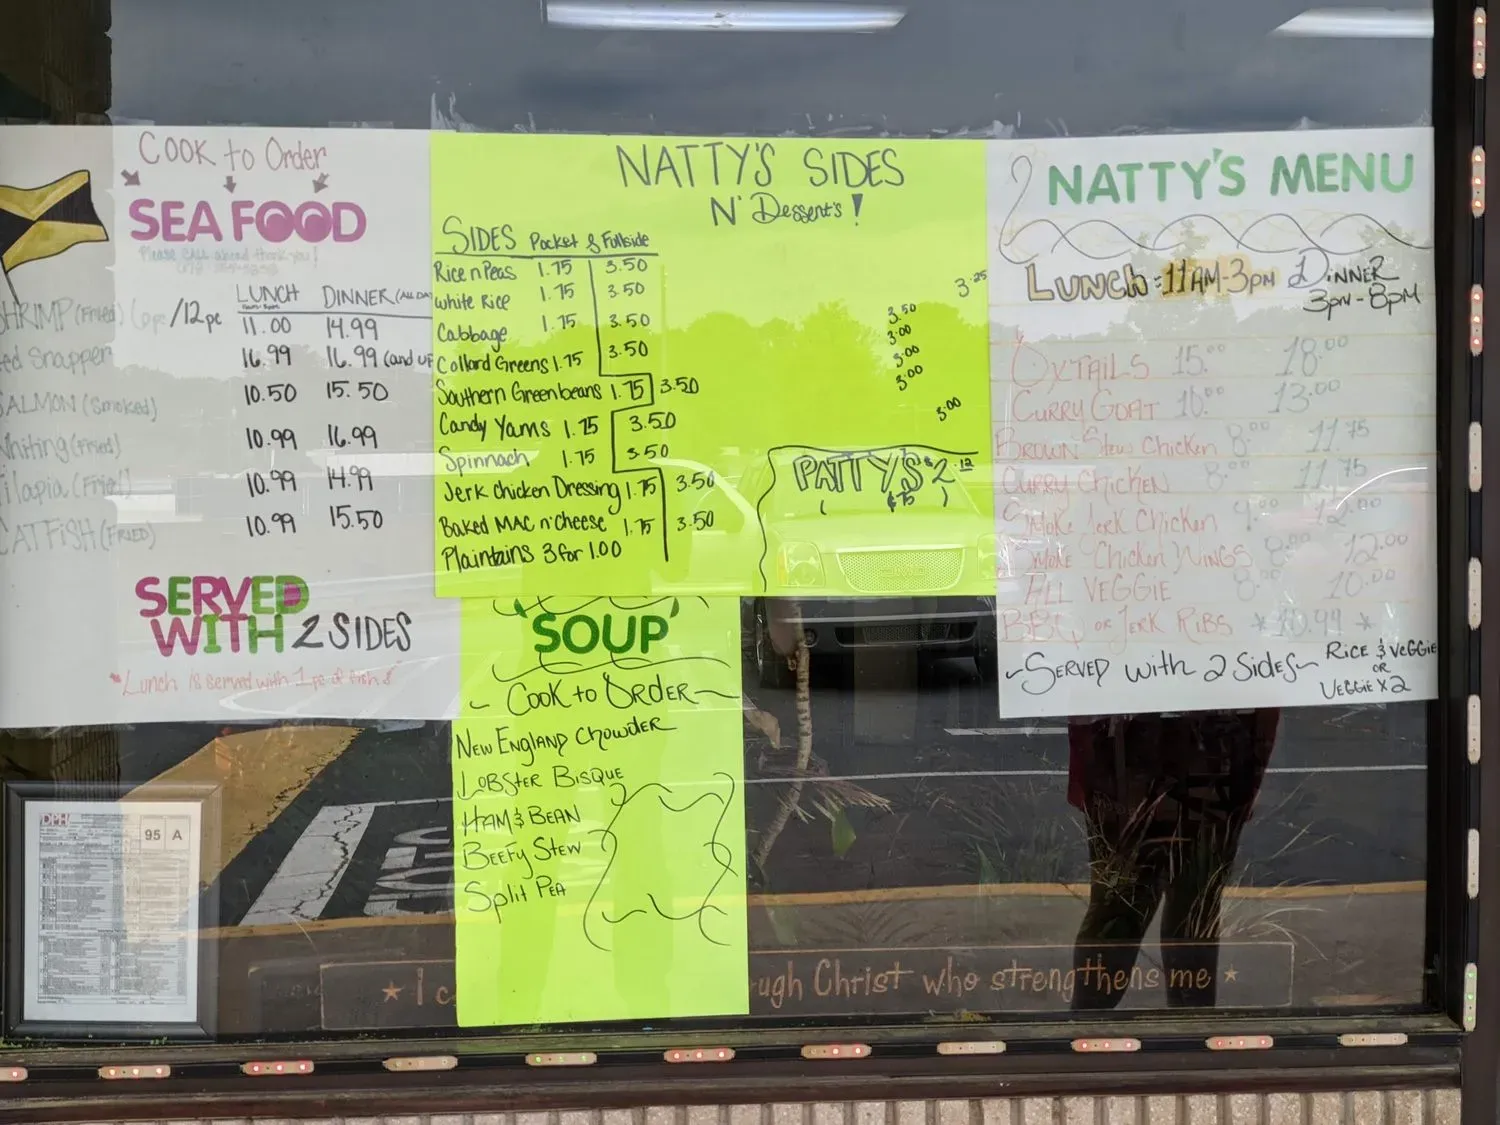 COOK to Order
SEAFOOD
Please call ahead thank you!
LUNCH DINNER (ALL DAY
SHRIMP (Fried) 6pc/12pc 11.00 14.99
ed Snapper 16.99 16.99 (and up
SALMON (Smoked) 10.50 15.50
Whiting (Fried) 10.99 16.99
Tilapia (Fried) 10.99 14.99
CATFISH (FRIED) 10.99 15.50
SERVED
WITH 2 SIDES
*Lunch is served with 1pc of fish
NATTY'S SIDES
N' Dessert's!
SIDES Pocket & Fullside
Rice n Peas 1.75 3.50
white Rice 1.75 3.50
Cabbage 1.75 3.50
Collard Greens 1.75 3.50
Southern Greenbeans 1.75 3.50
Candy Yams 1.75 3.50
Spinnach 1.75 3.50
Jerk chicken Dressing 1.75 3.50
Baked MAC n' cheese 1.75 3.50
Plaintains 3 for 1.00
3.25
3.50
3.00
3.00
3.00
3.00
PATTY'S $2.12
( $.75 )
'SOUP'
~ COOK to ORDER ~
NEW ENGLAND CHOWDER
LOBSTER BISQUE
HAM & BEAN
BEEFY STEW
Split PEA
NATTY'S MENU
LUNCH = 11AM-3PM DINNER
3PM-8PM
OXTAILS 15.00 18.00
CURRY GOAT 10.00 13.00
BROWN Stew Chicken 8.00 11.75
CURRY CHICKEN 8.00 11.75
SMOKE Jerk Chicken 9.00 12.00
SMOKE Chicken WINGS 8.00 12.00
ALL VEGGIE 8.00 10.00
BBQ or JERK RIBS * 10.99 *
~SERVED with 2 Sides~ RICE & VEGGIE
OR
VEGGIE X2
DPH
95 A
★ I c ugh Christ who strengthens me ★